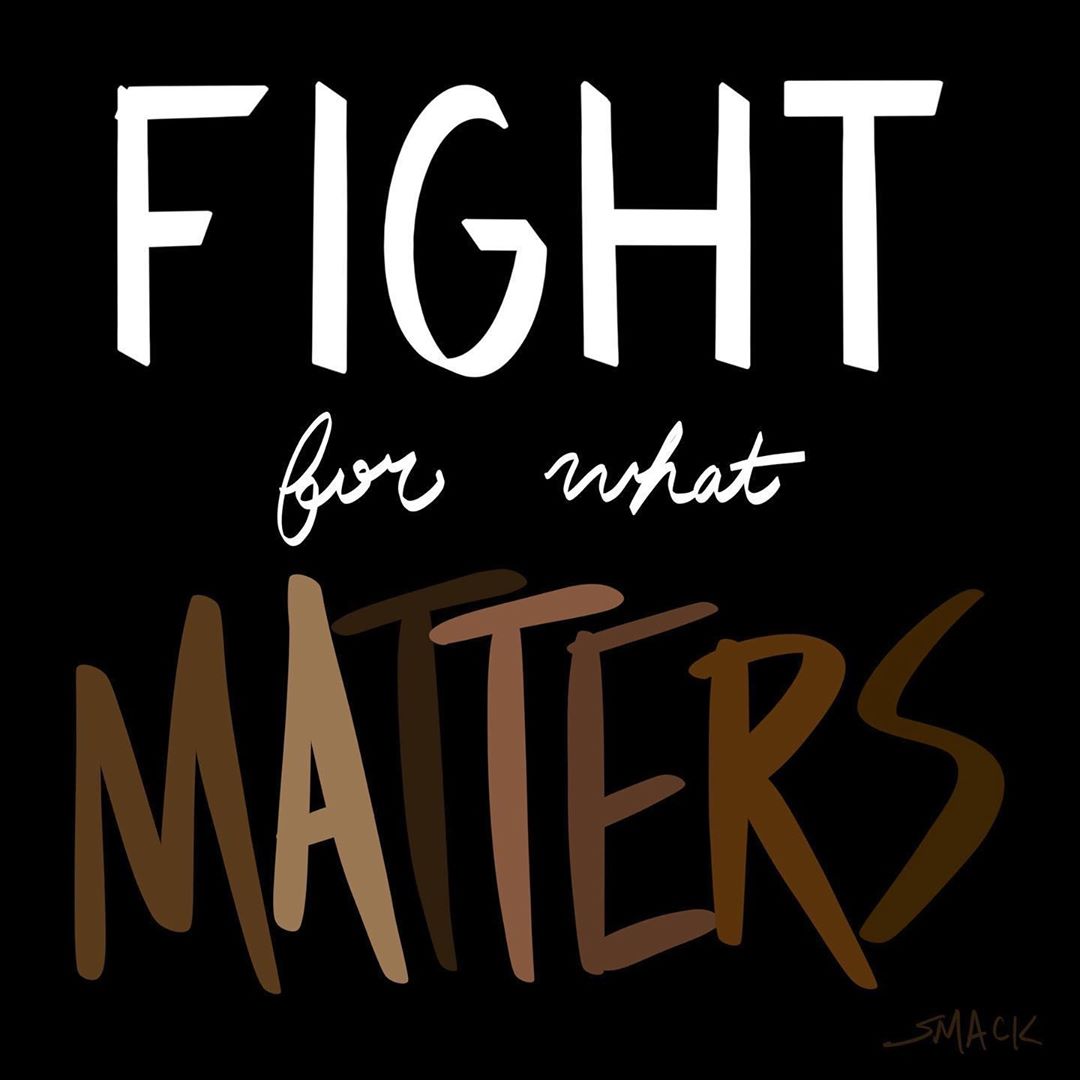 FIGHT
for what
MATTERS
SMACK